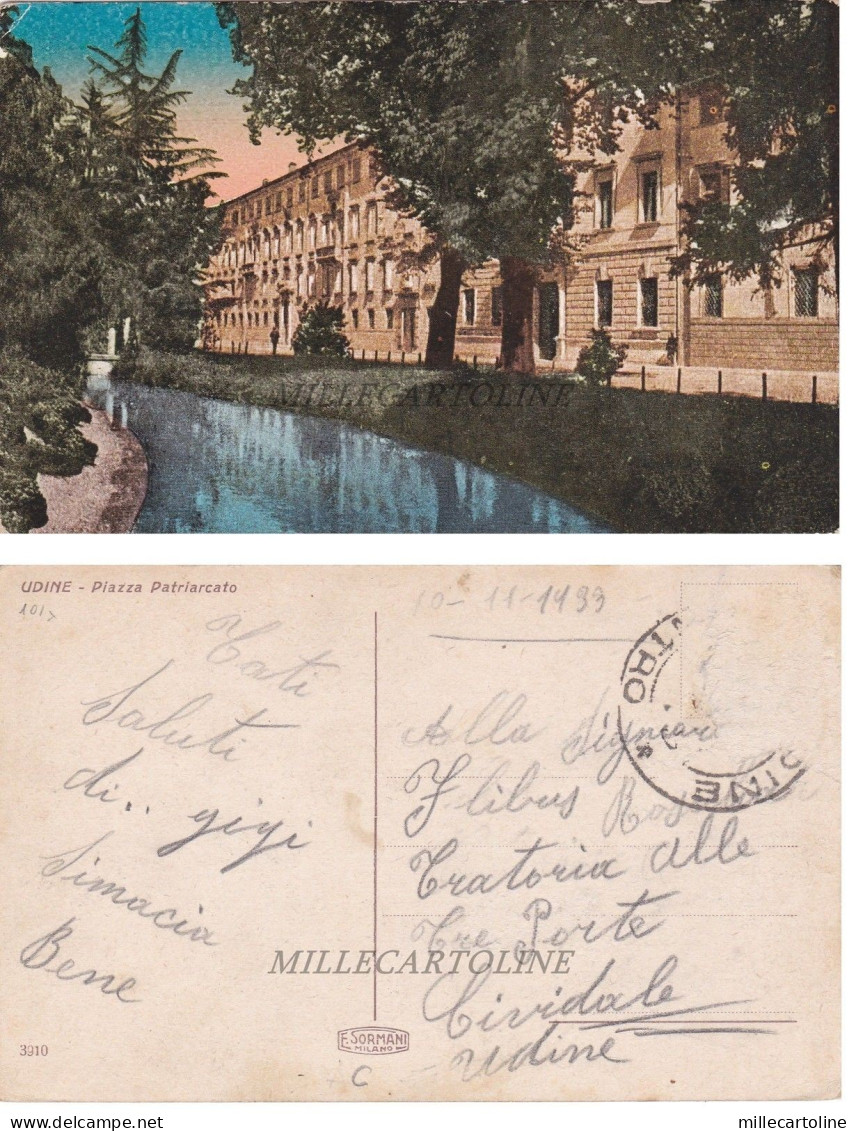 MILLECARTOLINE
UDINE - Piazza Patriarcato
101
10-11-1933
Cati
Saluti
di.. gigi
Simacia
Bene
NTRO
UDINE
*
Alla Signiara
Flibus
Tratoria alle
Tre Porte
Cividale
Udine
MILLECARTOLINE
3910
F. SORMANI
MILANO
C
delcampe.net
millecartoline